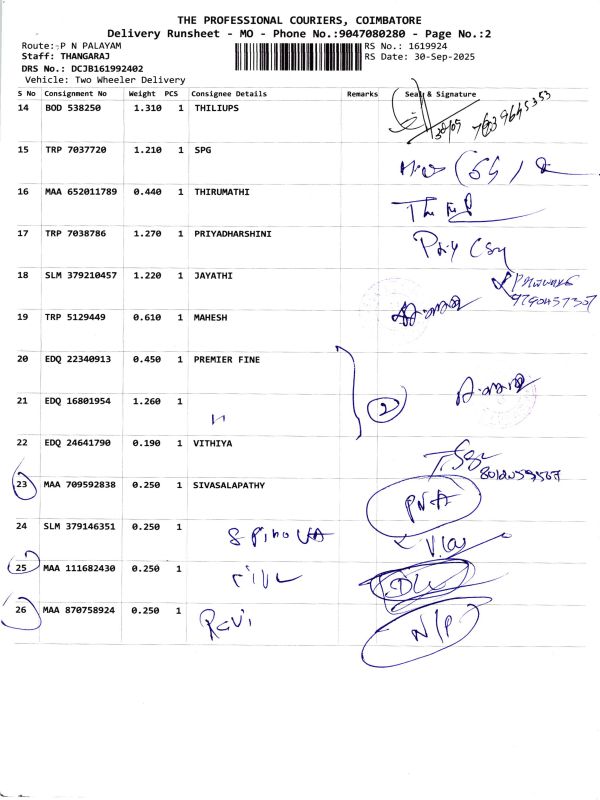 THE PROFESSIONAL COURIERS, COIMBATORE
Delivery Runsheet - MO - Phone No.:9047080280 - Page No.:2
Route: P N PALAYAM RS No.: 1619924
Staff: THANGARAJ RS Date: 30-Sep-2025
DRS No.: DCJB161992402
Vehicle: Two Wheeler Delivery
S No Consignment No Weight PCS Consignee Details Remarks Seal & Signature
14 BOD 538250 1.310 1 THILIUPS
30/09 7639645353
15 TRP 7037720 1.210 1 SPG
16 MAA 652011789 0.440 1 THIRUMATHI
17 TRP 7038786 1.270 1 PRIYADHARSHINI
Priy
18 SLM 379210457 1.220 1 JAYATHI
9790457307
19 TRP 5129449 0.610 1 MAHESH
20 EDQ 22340913 0.450 1 PREMIER FINE
21 EDQ 16801954 1.260 1
2
22 EDQ 24641790 0.190 1 VITHIYA
23 MAA 709592838 0.250 1 SIVASALAPATHY
PNA
24 SLM 379146351 0.250 1
25 MAA 111682430 0.250 1
DL
26 MAA 870758924 0.250 1 Ravi N/P